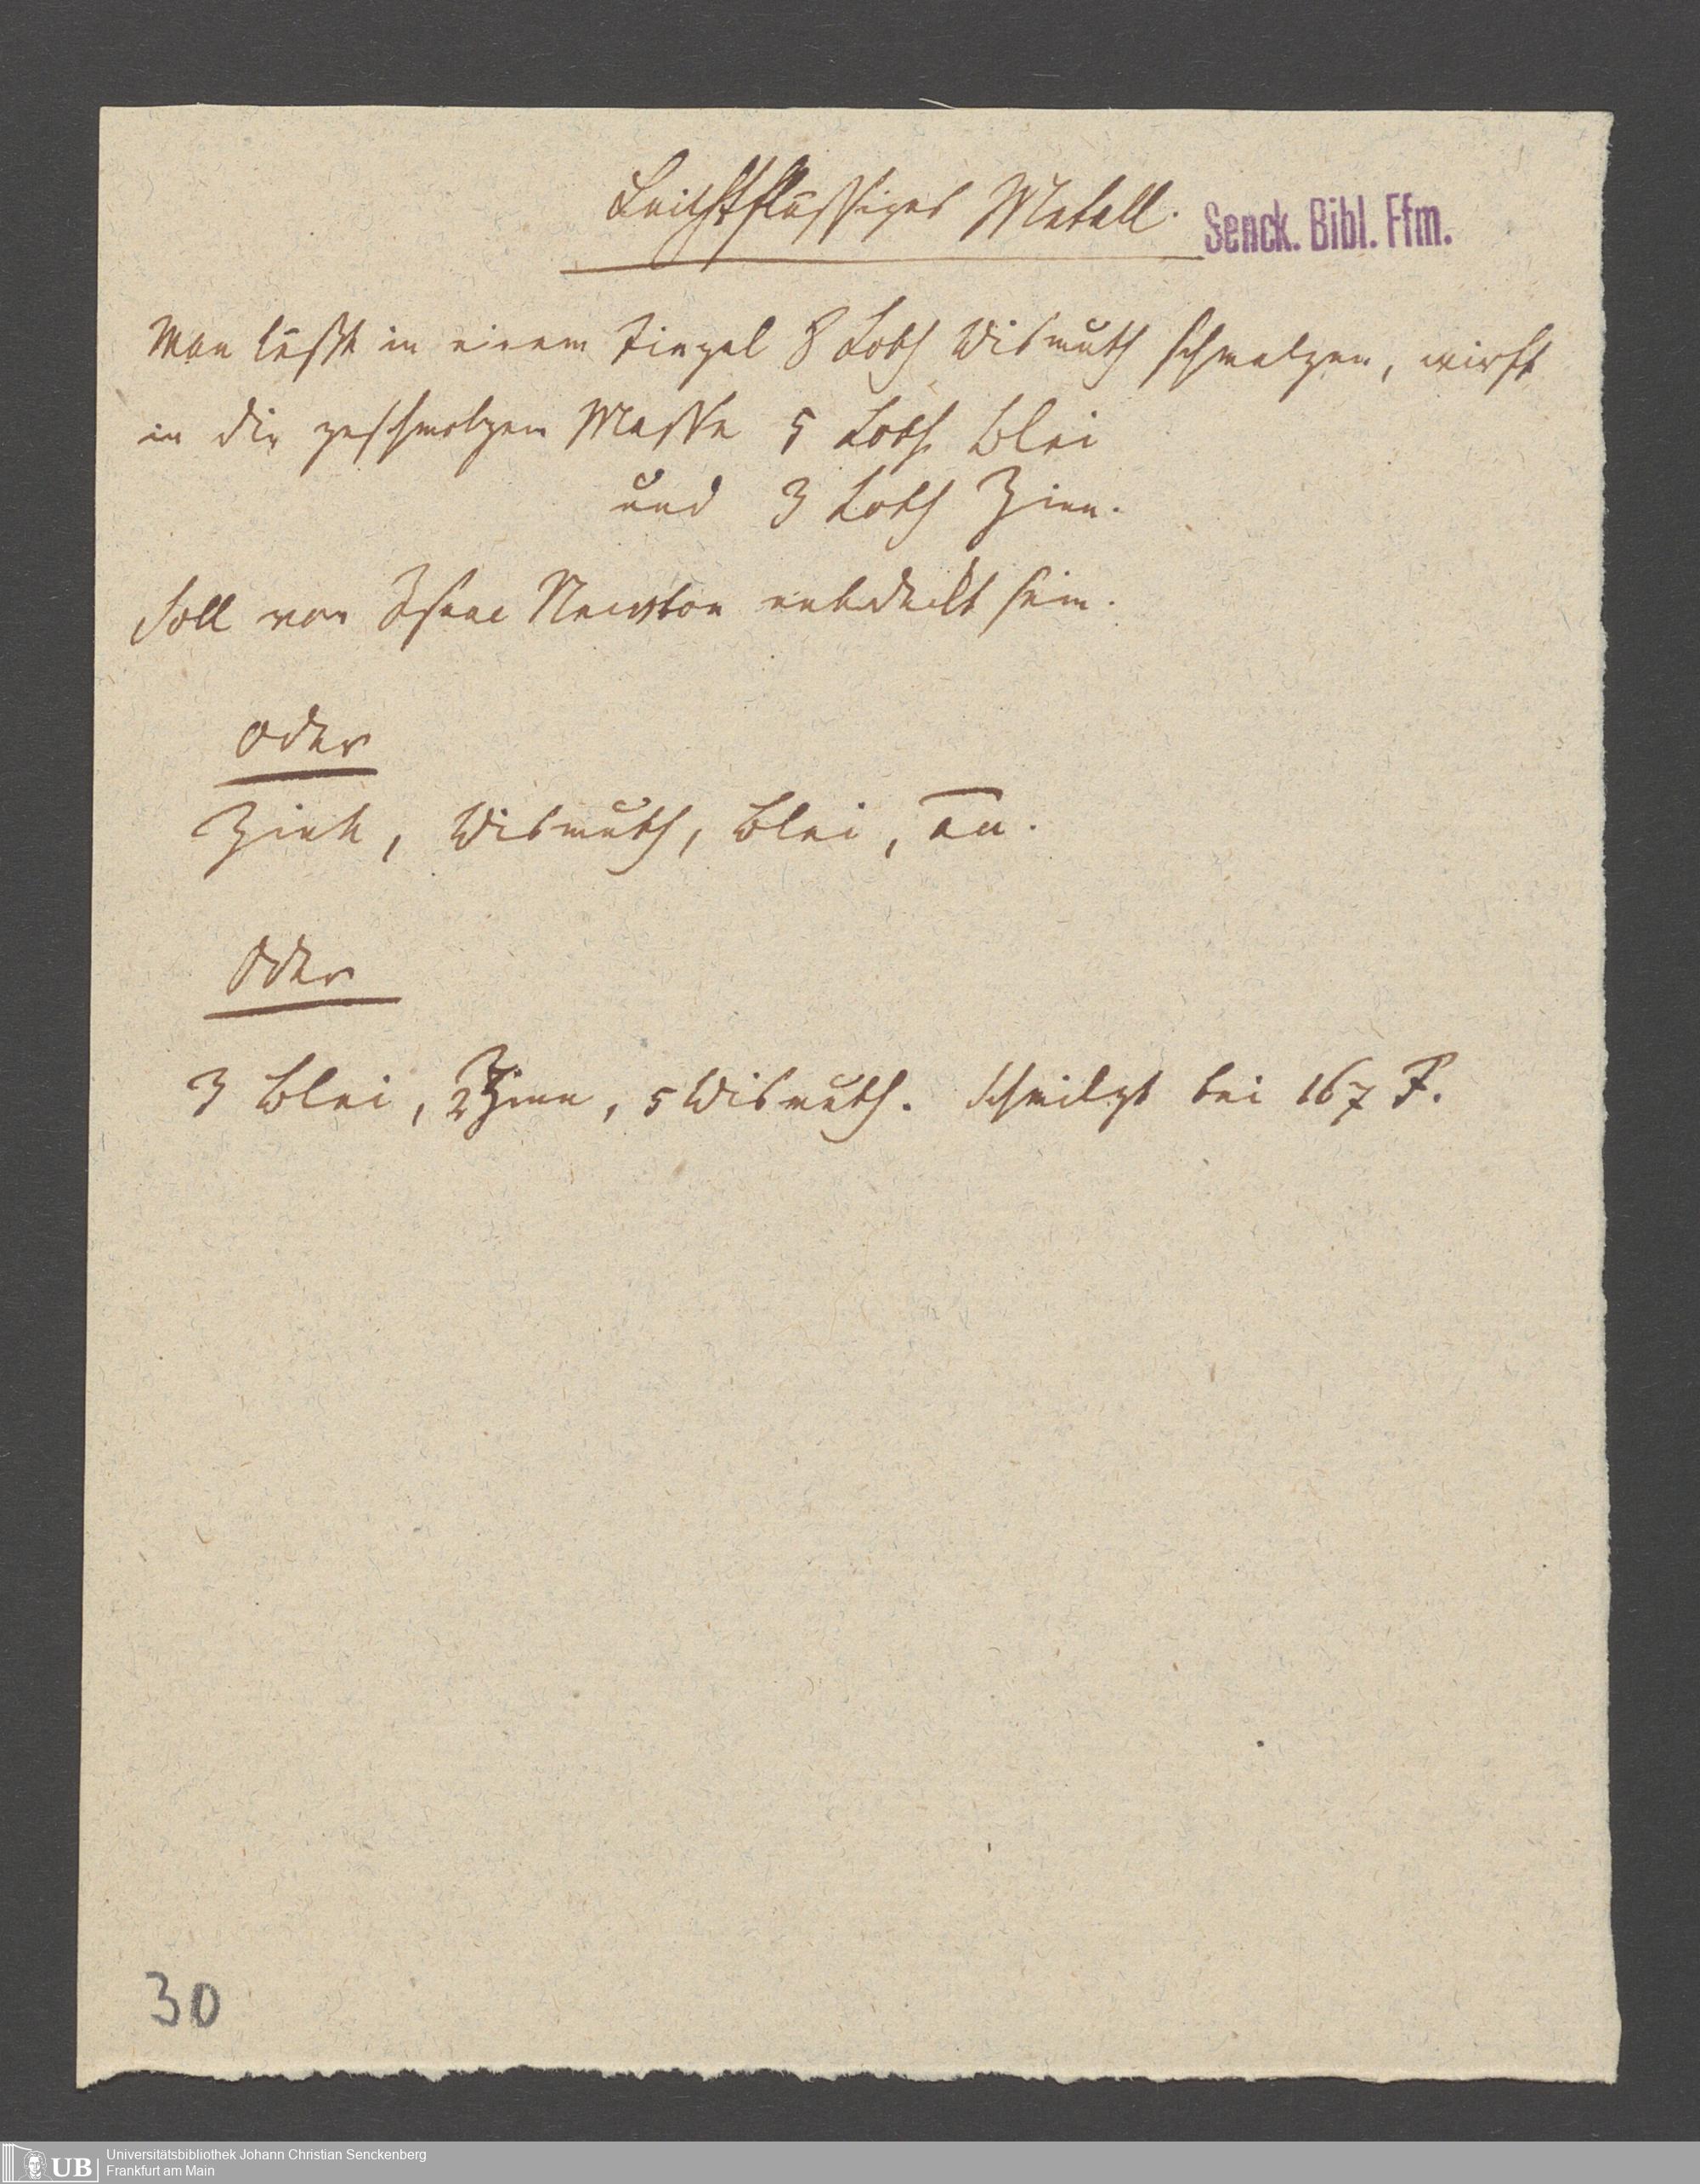 Leichtflüssiges Metall.
Senck. Bibl. Ffm.
Man läßt in einem Tiegel 8 Loth Wismuth schmelzen, wirft
in die geschmolzen Masse 5 Loth Blei
und 3 Loth Zinn.
Soll von Isaac Newton entdeckt sein.
oder
Zink, Wismuth, Blei, aa.
Oder
3 Blei, 2 Zinn, 5 Wismuth. Schmilzt bei 167 F.
30
UB
Universitätsbibliothek Johann Christian Senckenberg
Frankfurt am Main